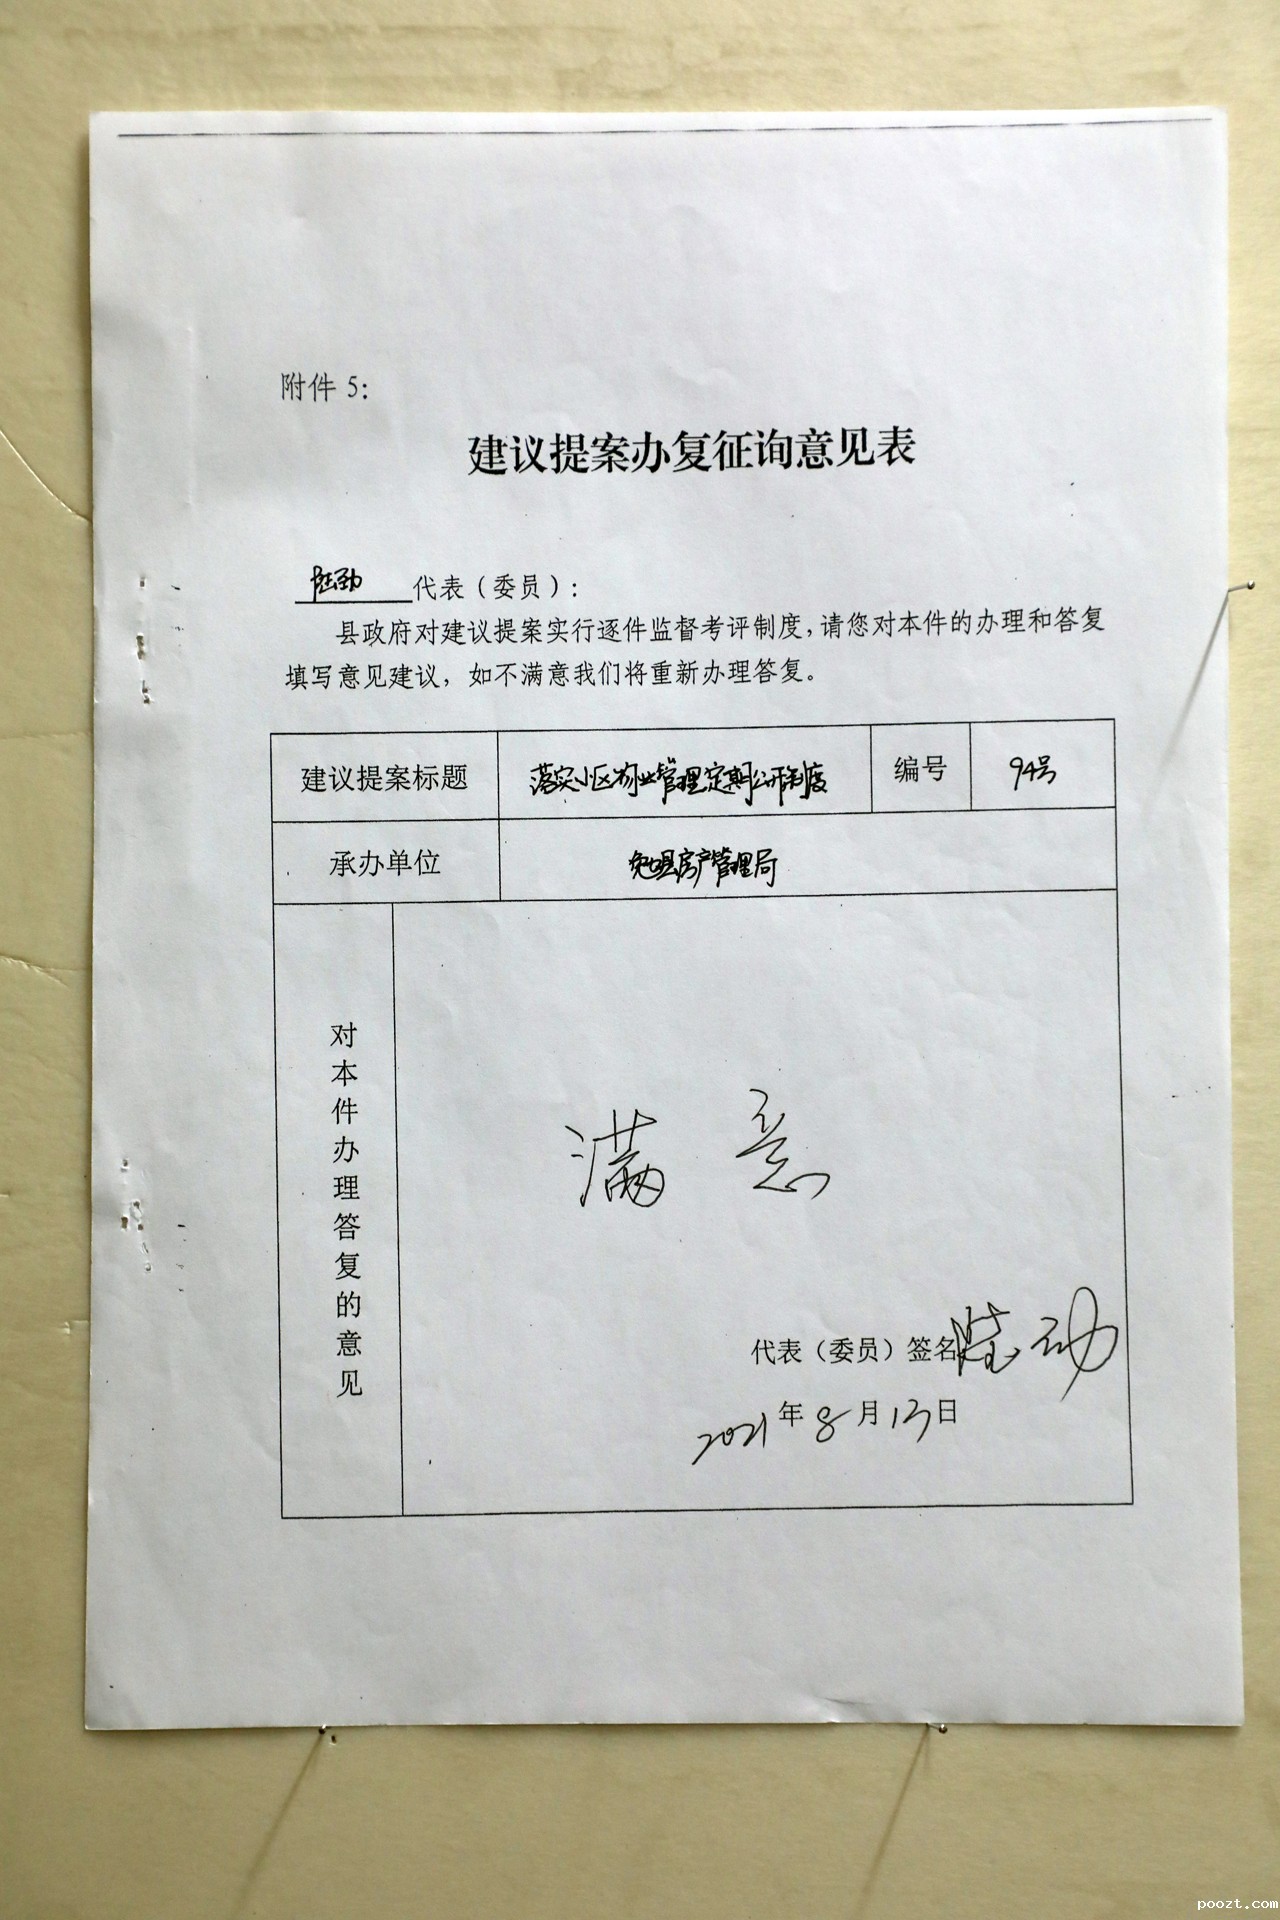 附件 5：
建议提案办复征询意见表
陆劲 代表（委员）：
县政府对建议提案实行逐件监督考评制度，请您对本件的办理和答复
填写意见建议，如不满意我们将重新办理答复。
建议提案标题 落实小区物业管理定期公开制度 编号 94号
承办单位 勉县房产管理局
对本件办理答复的意见
满意
代表（委员）签名
2021年8月13日
poozt.com